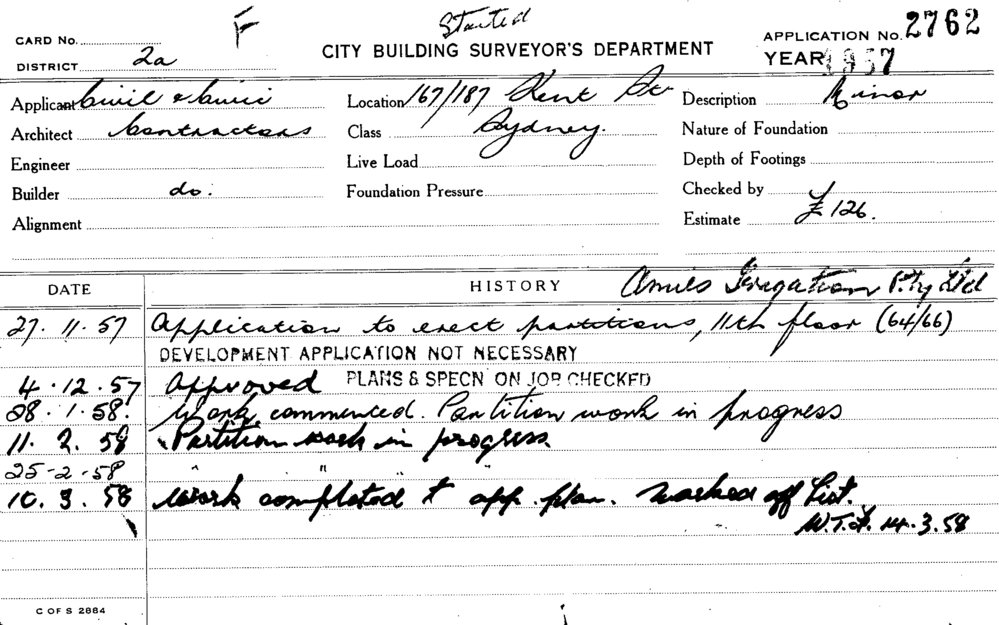 F Started
CARD No. CITY BUILDING SURVEYOR'S DEPARTMENT APPLICATION No. 2762
DISTRICT 2a YEAR 1957
Applicant Civil & Civic Location 167/187 Kent St. Description Minor
Architect Contractors Class Sydney. Nature of Foundation
Engineer Live Load Depth of Footings
Builder do. Foundation Pressure Checked by
Alignment Estimate £126.
DATE HISTORY Irrigation Pty Ltd
27.11.57 Application to erect partitions, 11th floor (64/66)
DEVELOPMENT APPLICATION NOT NECESSARY
4.12.57 Approved PLANS & SPECN ON JOB CHECKED
28.1.58. Work commenced. Partition work in progress
11.2.58 Partition work in progress
25-2-58 " " " "
10.3.58 Work completed t app. plan. Marked off List.
14.3.58
C OF S 2884